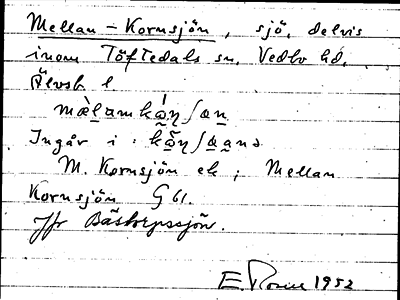 Mellan-Kornsjön, sjö, delvis
inom Töftedals sn, Vedbo hd,
Älvsb l
Ingår i:
M. Kornsjön ek; Mellan
Kornsjön G 61.
Jfr Bästorpssjön.
E. Rosell 1952